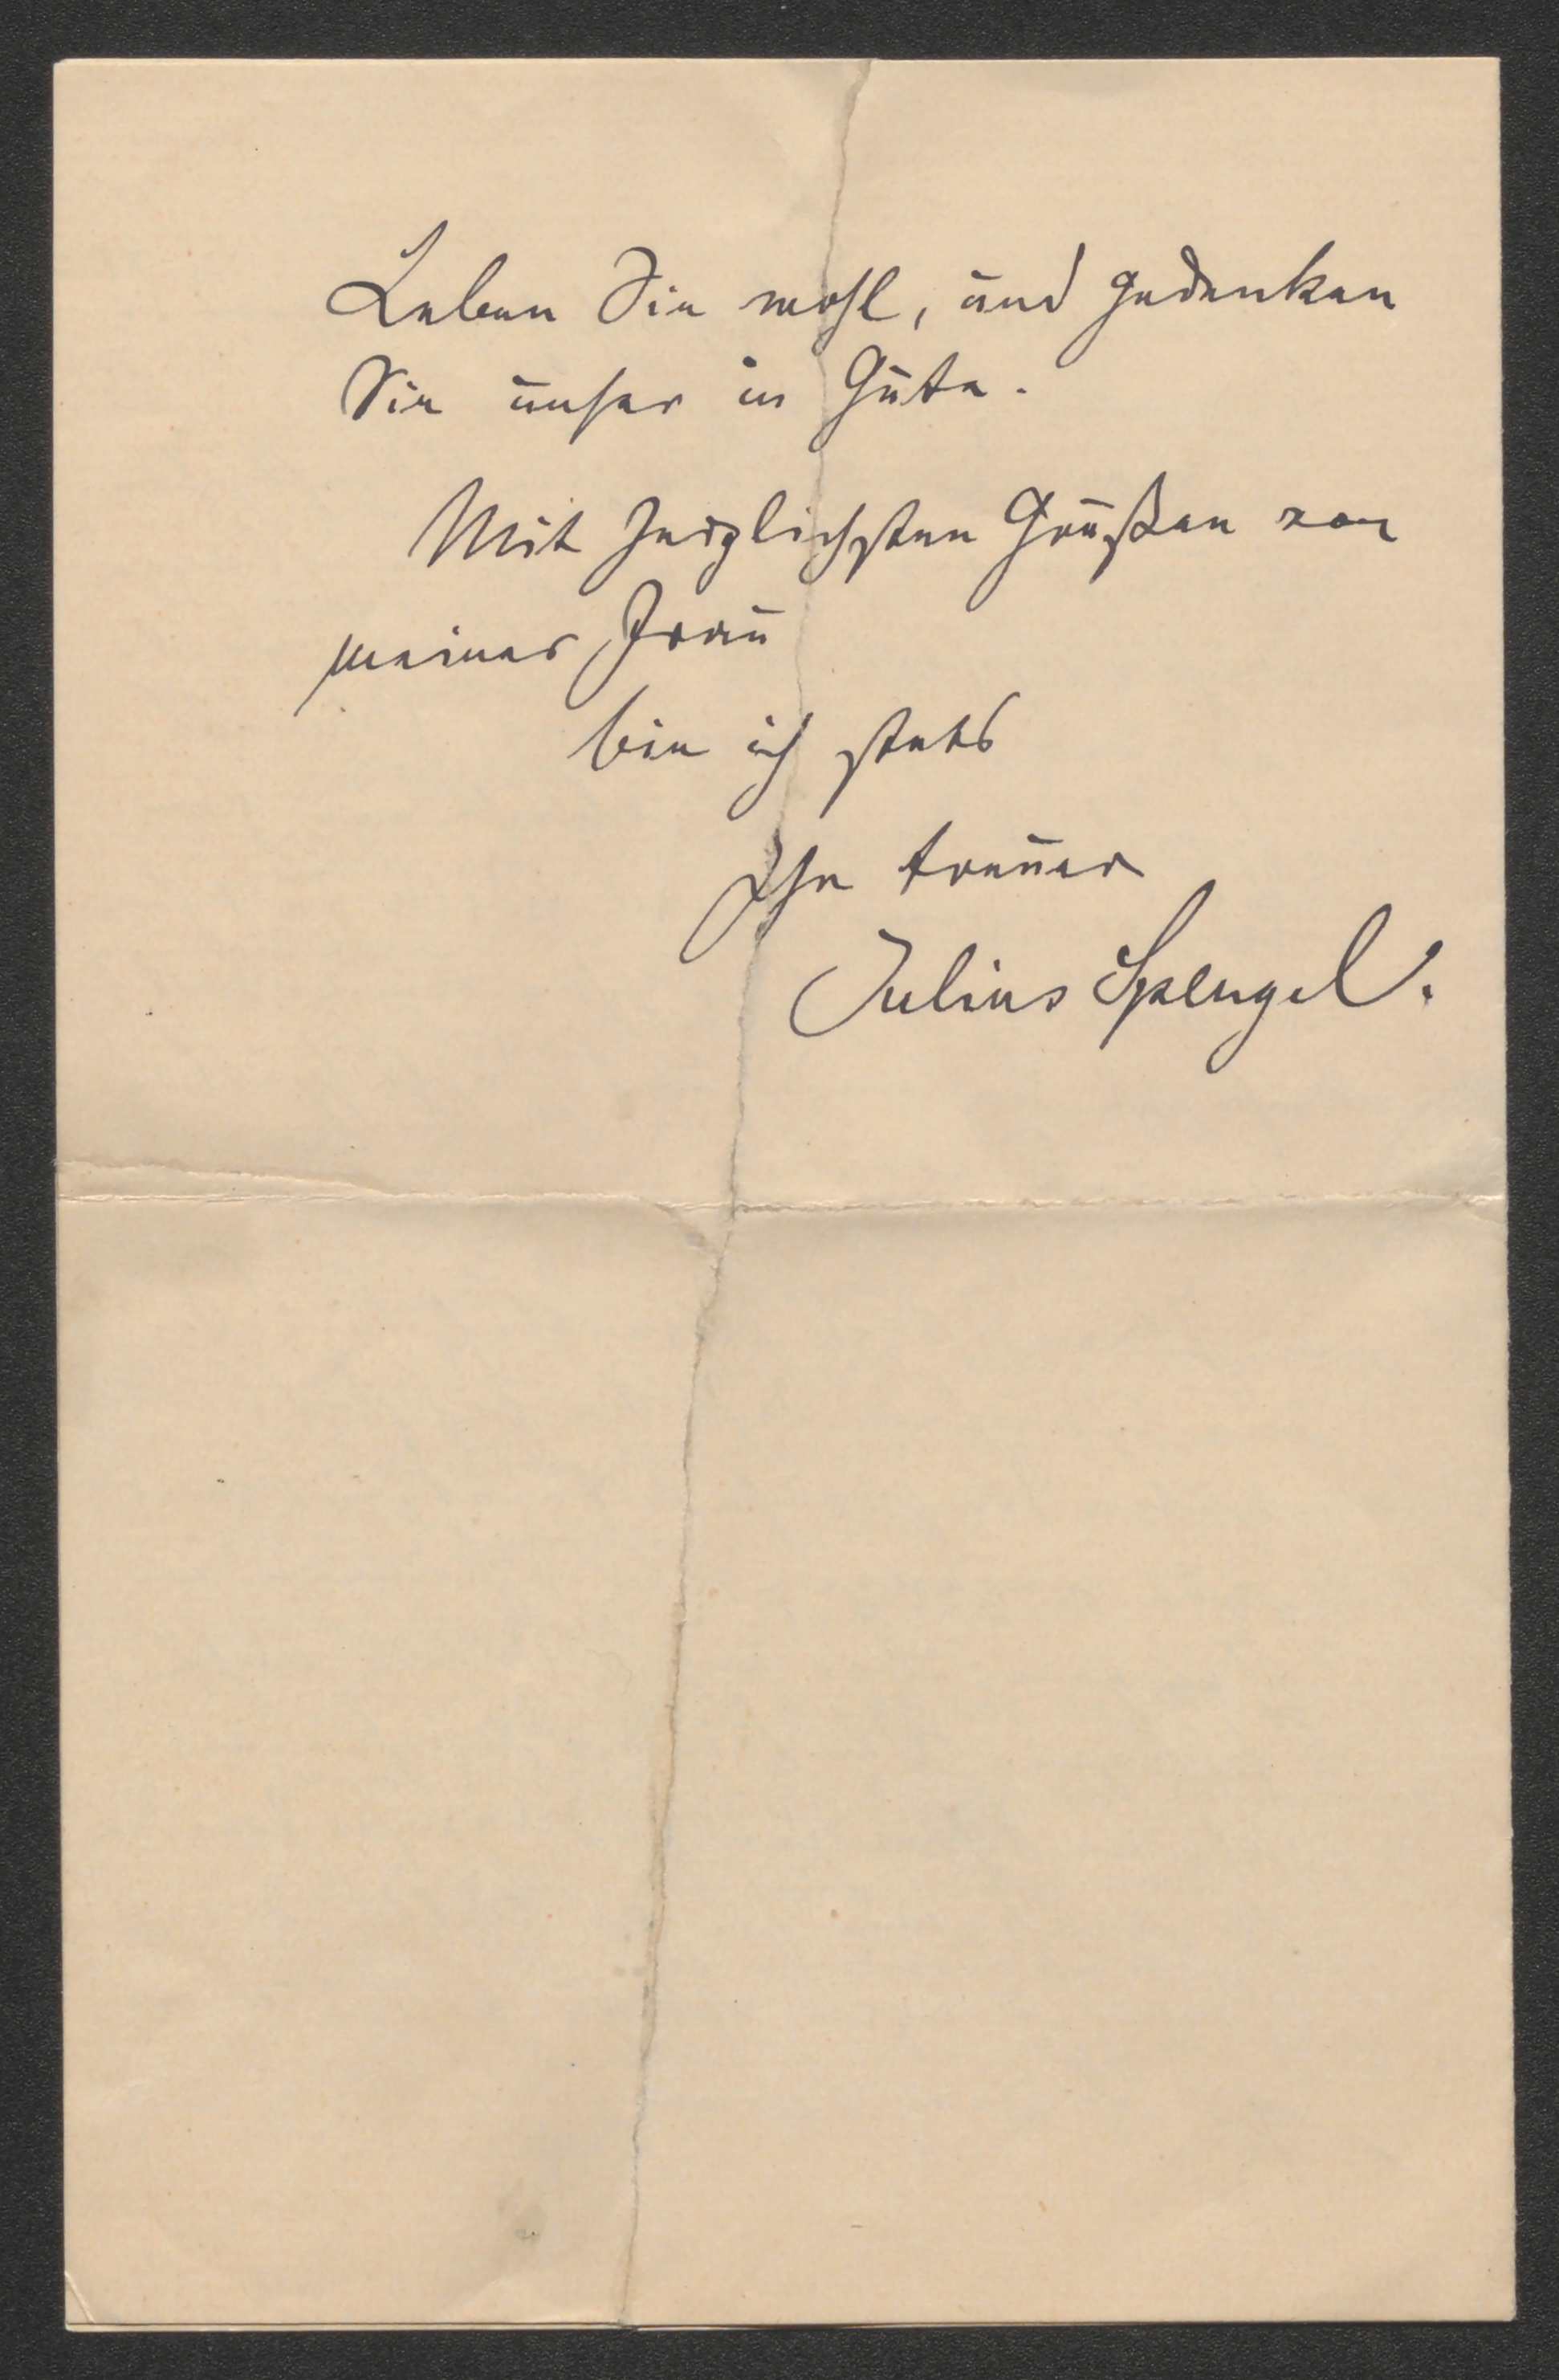 Leben Sie wohl, und gedenken
Sie unser in Güte.
Mit herzlichsten Grüßen von
meiner Frau
bin ich stets
Ihr treuer
Julius Spengel.